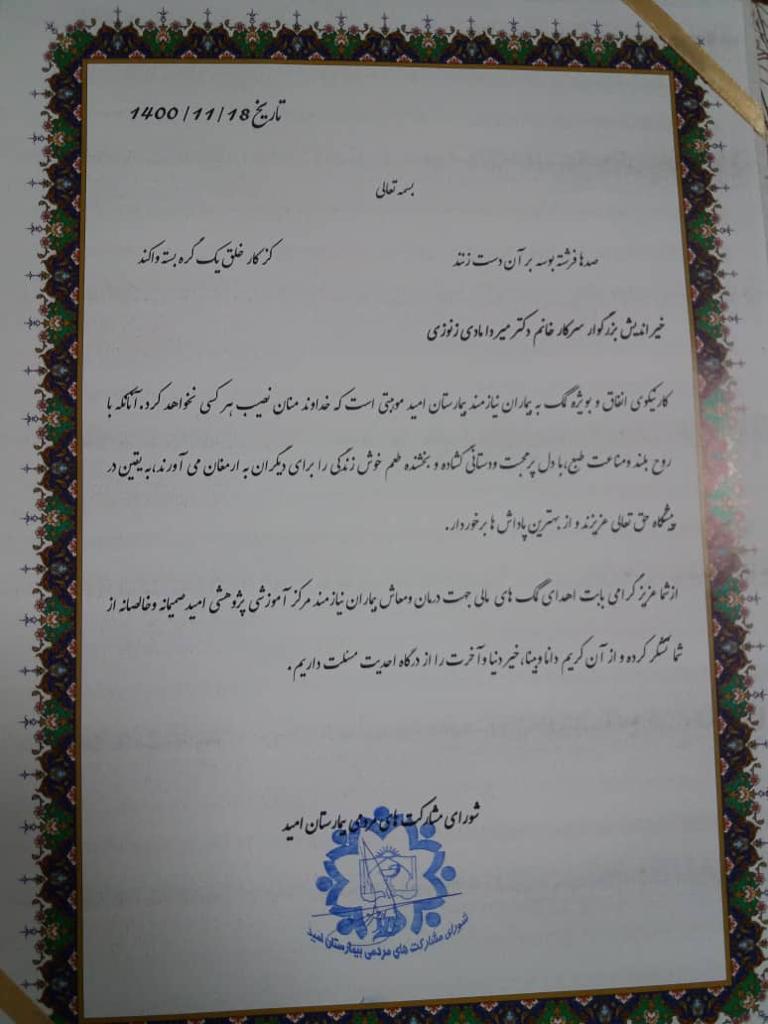 تاریخ 1400/11/18
بسمه تعالی
صدها فرشته بوسه بر آن دست زنند کز کار خلق یک گره بسته واکند
خیراندیش بزرگوار سرکار خانم دکتر میردامادی زنوزی
کار نیکوی انفاق و بویژه کمک به بیماران نیازمند بیمارستان امید موهبتی است که خداوند منان نصیب هر کسی نخواهد کرد. آنانکه با
روح بلند ومناعت طبع، با دل پرمحبت ودستانی گشاده و بخشنده طعم خوش زندگی را برای دیگران به ارمغان می آورند، به یقین در
پیشگاه حق تعالی عزیزند و از بهترین پاداش ها برخوردار.
از شما عزیز گرامی بابت اهدای کمک های مالی جهت درمان ومعاش بیماران نیازمند مرکز آموزشی پژوهشی امید صمیمانه وخالصانه از
شما تشکر کرده و از آن کریم دانا وبینا، خیر دنیا وآخرت را از درگاه احدیت مسئلت داریم.
شورای مشارکت های مردمی بیمارستان امید
شورای مشارکت های مردمی بیمارستان امید